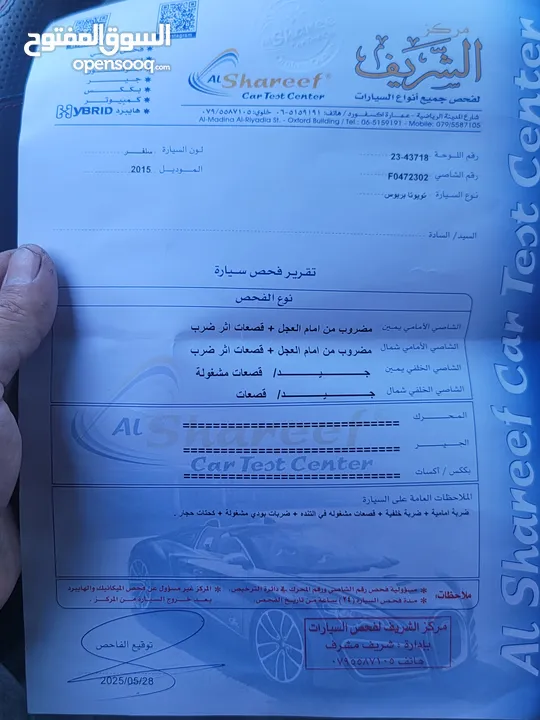 السوق المفتوح
opensooq.com
مركز
الشريف
لفحص جميع أنواع السيارات
AL Shareef
Car Test Center
بككس
كمبيوتر
هايبرد
HYBRID
شارع المدينة الرياضية - عمارة اكسفورد / هاتف: ٠٦-٥١٥٩١٩١ خلوي: ٠٧٩/٥٥٨٧١٠٥
Al-Madina Al-Riyadia St. - Oxford Building / Tel.: 06-5159191 - Mobile: 079/5587105
رقم اللوحة 23-43718 لون السيارة سلفر
رقم الشاصي F0472302 الموديل 2015
نوع السيارة تويوتا بريوس
السيد / السادة
تقرير فحص سيارة
نوع الفحص
الشاصي الأمامي يمين مضروب من امام العجل + قصعات اثر ضرب
الشاصي الأمامي شمال مضروب من امام العجل + قصعات اثر ضرب
الشاصي الخلفي يمين جـــيـــد / قصعات مشغولة
الشاصي الخلفي شمال جـــيـــد / قصعات
المحرك ==============================
الجير ==============================
بككس / اكسات ==============================
الملاحظات العامة على السيارة
ضربة امامية + ضربة خلفية + قصعات مشغوله في التنده + ضربات بودي مشغولة + كحتات حجار .
ملاحظات: * مسؤولية فحص رقم الشاصي ورقم المحرك في دائرة الترخيص. * المركز غير مسؤول عن فحص الميكانيك والهايبرد
* مدة فحص السيارة (٢٤) ساعة من تاريخ الفحص بعد خروج السيارة من المركز.
مركز الشريف لفحص السيارات
بإدارة: شريف مشرف
هاتف ٠٧٩٥٥٨٧١٠٥
توقيع الفاحص
2025/05/28
Al Shareef Car Test Center